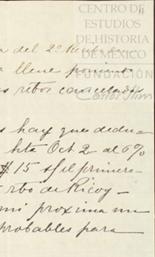 CENTRO DE
ESTUDIOS
DE HISTORIA
DE MÉXICO
FUNDACIÓN
Carlos Slim
a del 2º
llene
los rbos cancelados
s hay que dedu
hta Oct 2 al 6%
$15 s/ el primero
rbo de Ricoy
mi proxima
probables para